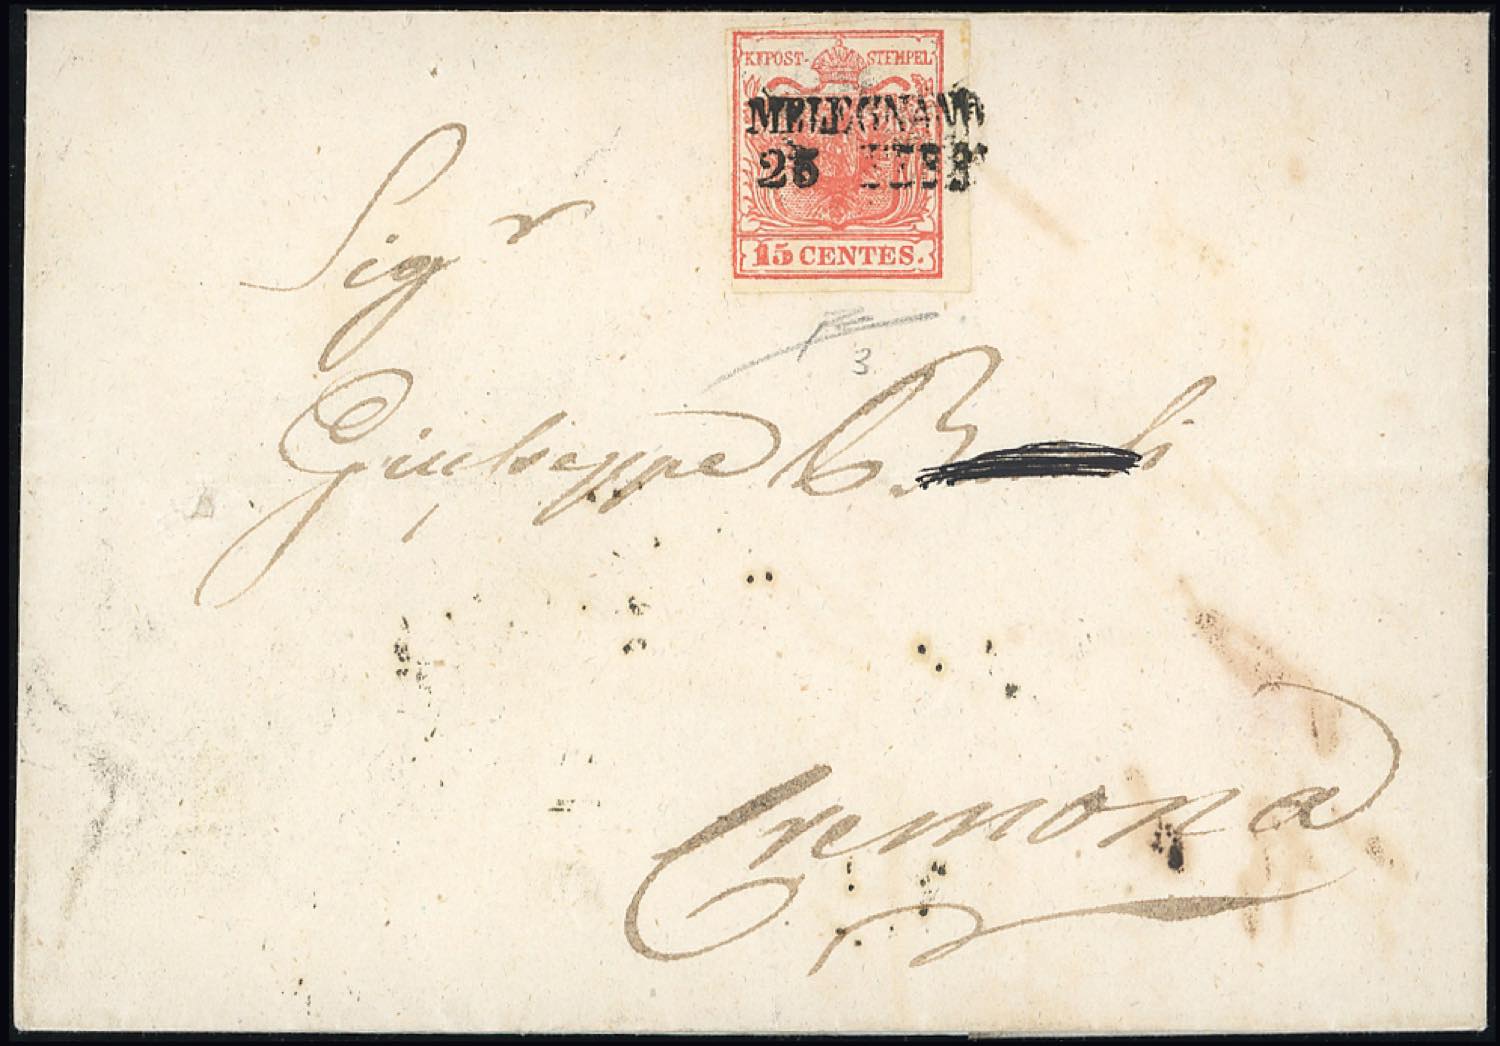 KKPOST-STEMPEL
MELEGNANO
25 FEBB
15 CENTES.
3
Sigr
Giuseppe
Cremona